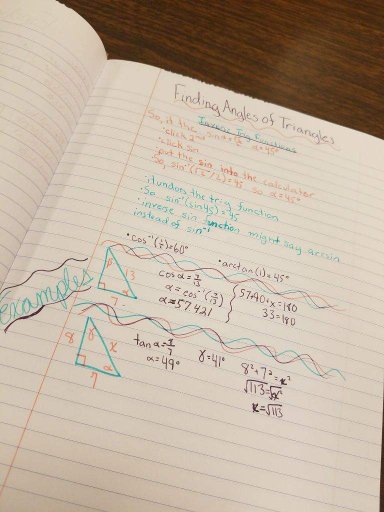 Finding Angles of Triangles
Inverse Trig Functions
So, if the sin α = α = 45°
• click 2nd
• click sin
• put the sin into the calculator
So, sin⁻¹(√2/2) = 45 so α = 45°
• it undoes the trig function
• So sin⁻¹(sin45) = 45
• inverse sin function might say arcsin
instead of sin⁻¹
• cos⁻¹(½) = 60°
• arctan(1) = 45°
Examples
13
7
α
cos α = 7/13
α = cos⁻¹(7/13)
α = 57.421
57+90+x=180
33=180
8
γ
x
α
7
tan α = 8/7
α = 49°
γ = 41°
8²+7²=x²
√113=√x²
x=√113